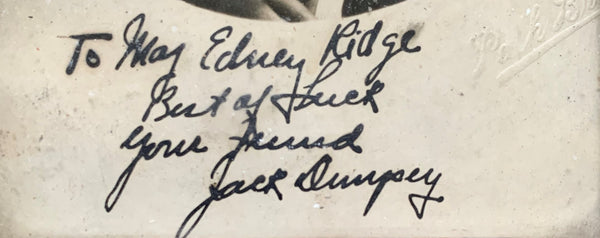 To Maj Edney Ridge
Best of Luck
Your friend
Jack Dempsey